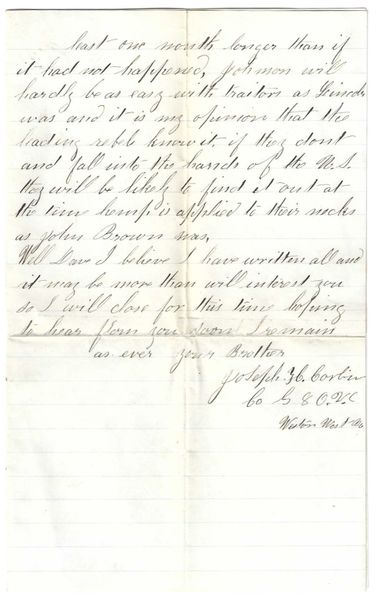 least one month longer than if
it had not happened, Johnson will
hardly be as easy with traitors as Lincoln
was and it is my opinion that the
leading rebels know it. if they dont
and fall into the hands of the U.S.
they will be likely to find it out at
the time hemp is applied to their necks
as John Brown was,
Well Dave I believe I have written all and
it may be more than will interest you
so I will close for this time hoping
to hear from you soon I remain
as ever your Brother
Joseph H. Corbin
Co G 8 O.V.C
Weston West Va